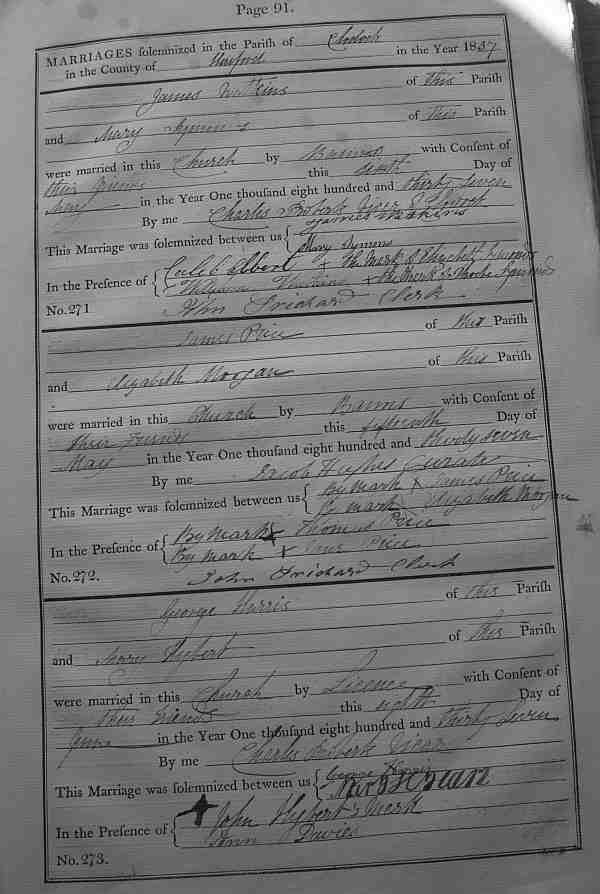 Page 91.
MARRIAGES solemnized in the Parish of Clodock
in the County of Hereford in the Year 1837
James Watkins of this Parish
and Mary Symons of this Parish
were married in this Church by Banns with Consent of
their Friends this Day of
May in the Year One thousand eight hundred and thirty Seven
By me Charles Robert Vicar
This Marriage was solemnized between us { James Watkins
Mary Symons
In the Presence of { Caleb Elbert × The Mark of Elizabeth
William × the Mark of
No. 271 John Prichard Clerk
James Price of this Parish
and Elizabeth Morgan of this Parish
were married in this Church by Banns with Consent of
their Friends this fifteenth Day of
May in the Year One thousand eight hundred and thirty seven
By me Jacob Hughes Curate
This Marriage was solemnized between us { By mark × James Price
By mark × Elizabeth Morgan
In the Presence of { By mark × Thomas Price
By mark × Price
No. 272. John Prichard Clerk
George Harris of this Parish
and Mary Hybert of this Parish
were married in this Church by Licence with Consent of
their Friends this eighth Day of
June in the Year One thousand eight hundred and thirty Seven
By me Charles Robert Vicar
This Marriage was solemnized between us { George Harris
In the Presence of { + John Hybert's Mark
Ann Davies
No. 273.